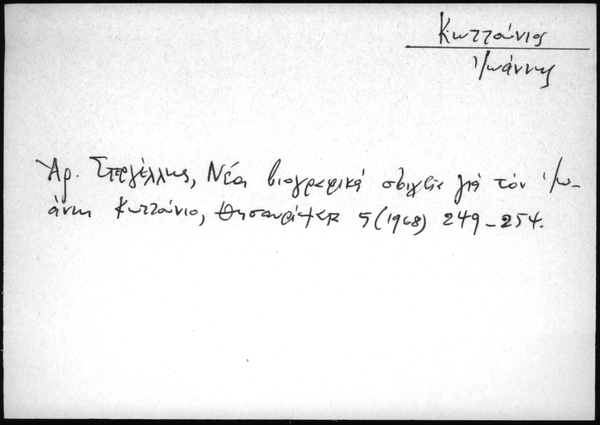 Κωττούνιος
Ἰωάννης
Ἀρ. Στεργέλλης, Νέα βιογραφικά στοιχεῖα γιά τόν Ἰω-
άννη Κωττούνιο, Θησαυρίσματα 5 (1968) 249-254.